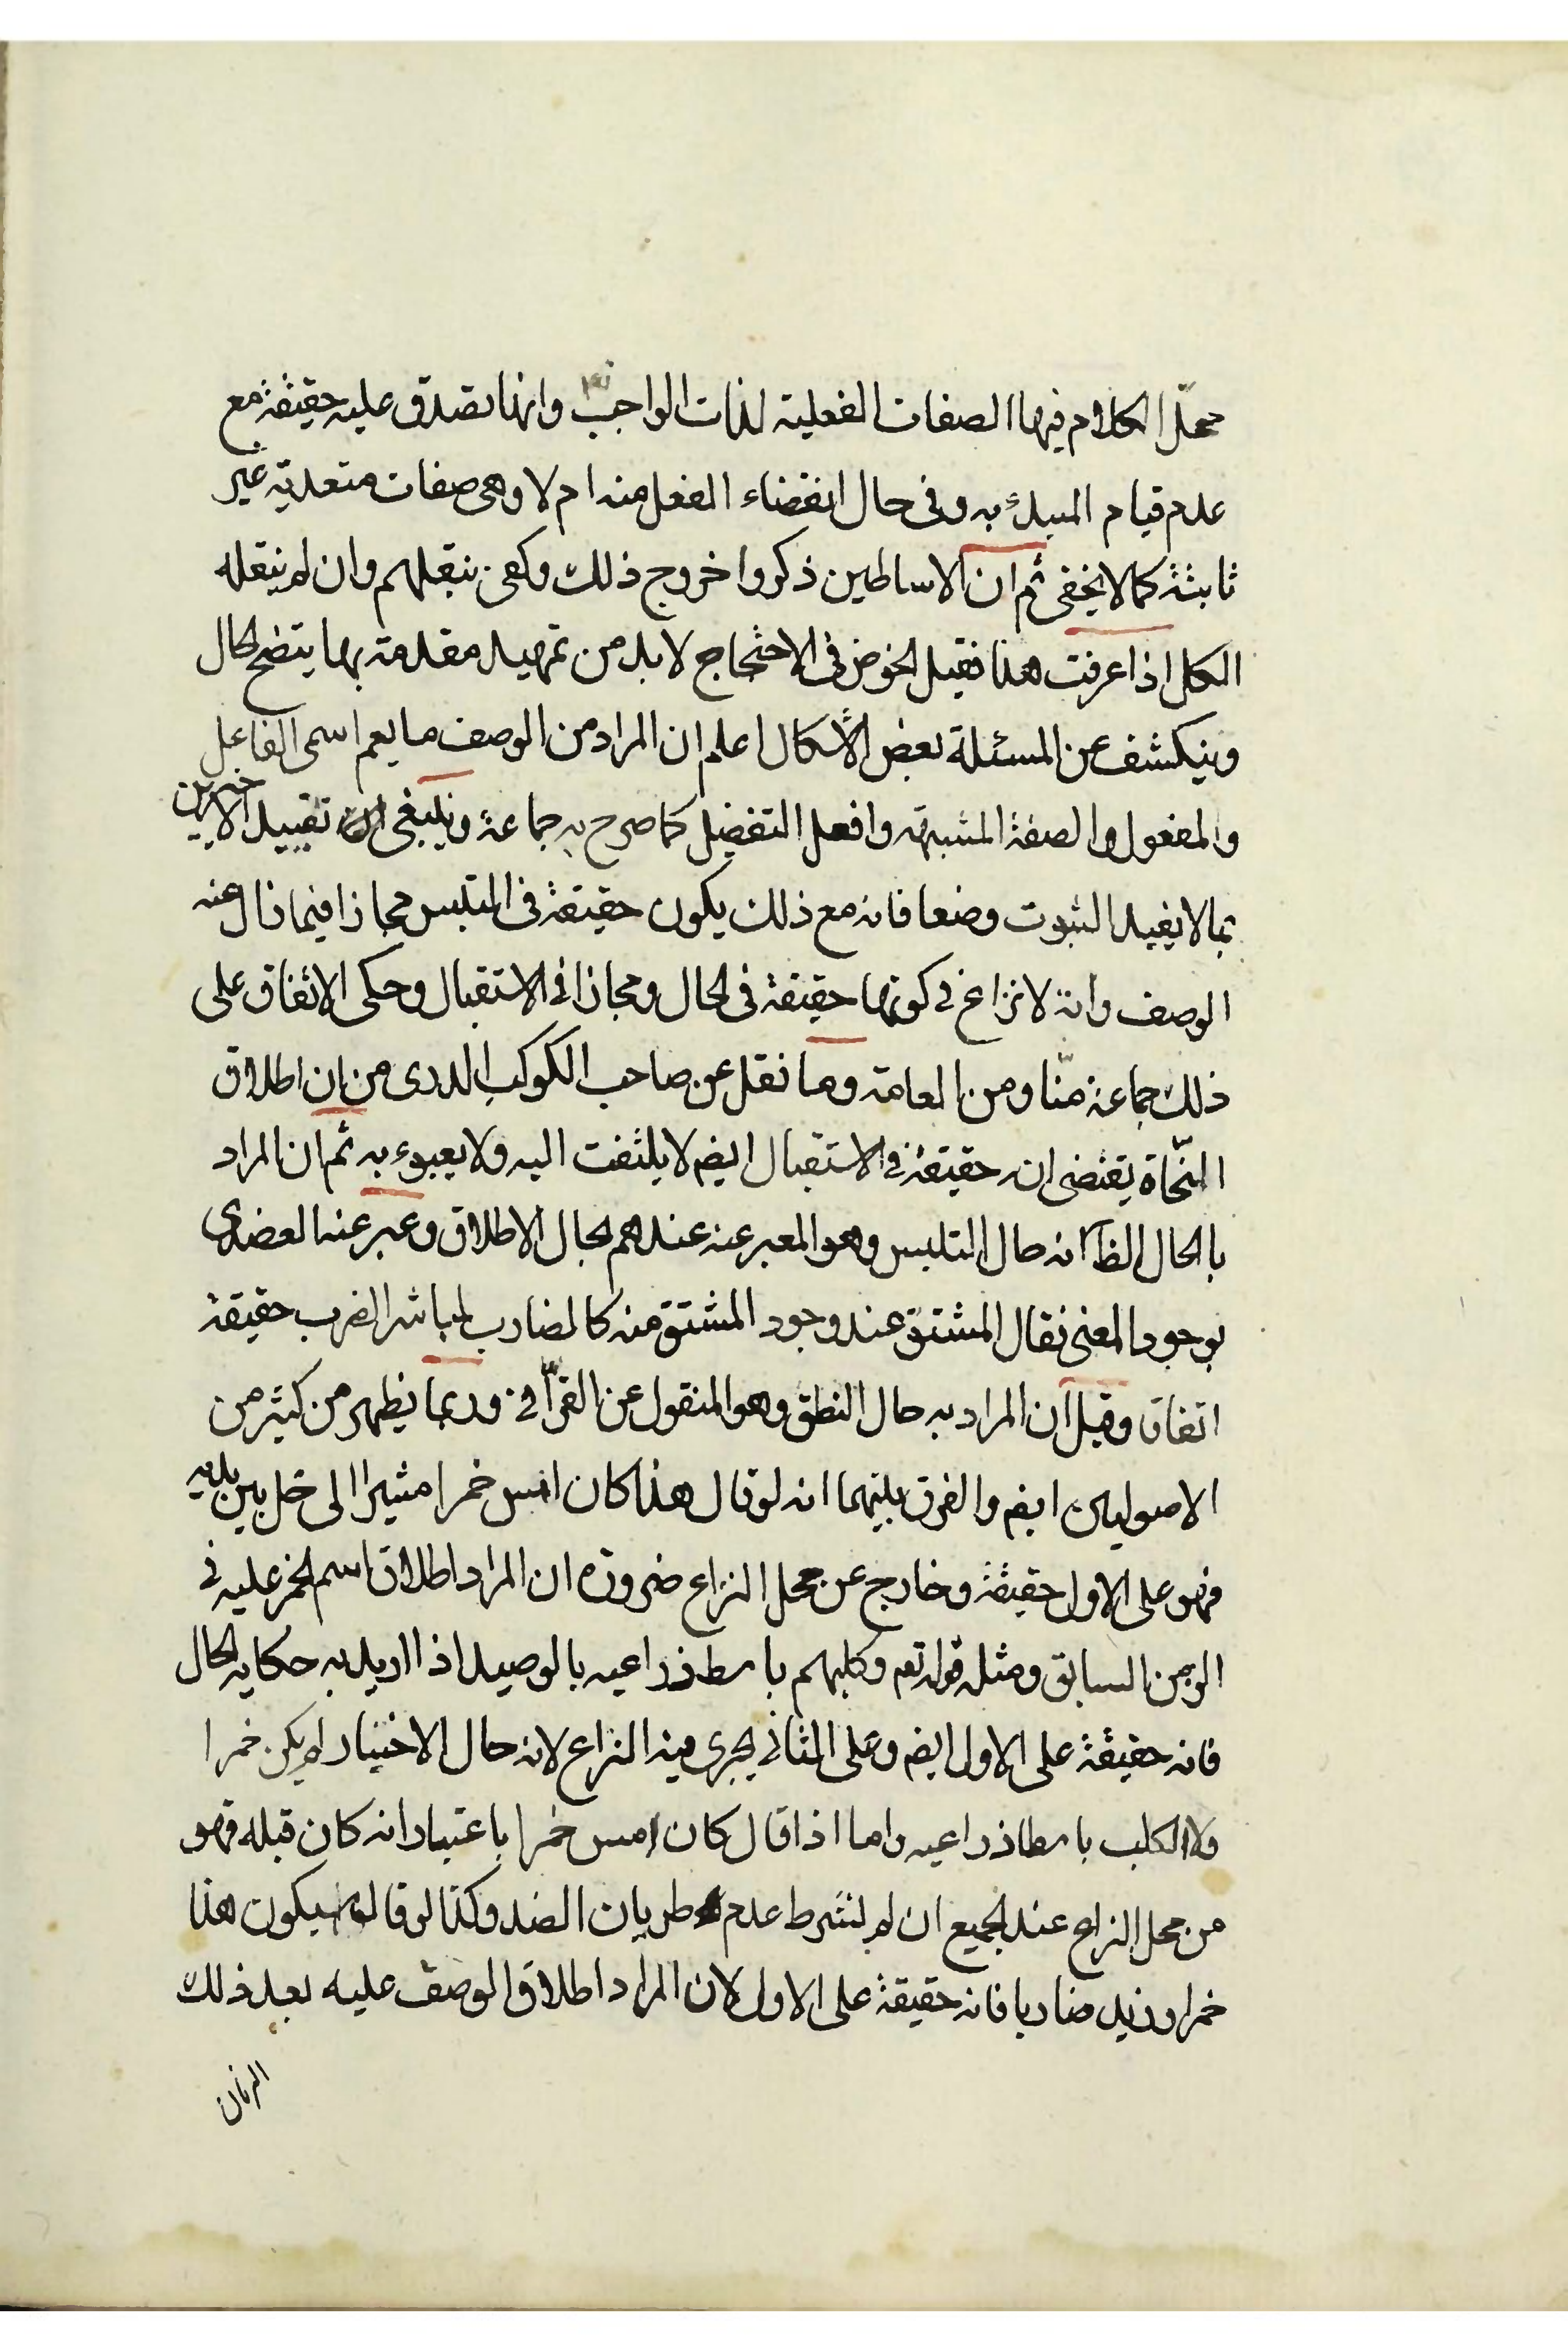 محلّ الكلام فيها الصفات الفعلية لذات الواجب تع وانها تصدق عليه حقيقة مع
عدم قيام المبدء به وفى حال انقضاء الفعل منه ام لا وهى صفات متعدية غير
ثابتة كما لا يخفى ثم ان الاساطين ذكروا خروج ذلك وكفى بنقلهم وان لم ينقله
الكل اذا عرفت هذا فقبل الخوض فى الاحتجاج لابد من تمهيد مقدمة بها يتضح الحال
وينكشف عن المسئلة بعض الاشكال اعلم ان المراد من الوصف ما يعم اسمى الفاعل
والمفعول والصفة المشبهة وافعل التفضيل كما صرح به جماعة وينبغى تقييد الاخيرين
بما لا يفيد الثبوت وضعا فانه مع ذلك يكون حقيقة فى المتلبس مجازا فيما زال عنه
الوصف وانه لا نزاع فى كونها حقيقة فى الحال ومجازا فى الاستقبال وحكى الاتفاق على
ذلك جماعة منّا ومن العامة وما نقل عن صاحب الكوكب الدرى من ان اطلاق
النحّاة يقتضى انه حقيقة فى الاستقبال ايضم لا يلتفت اليه ولا يعبوء به ثم ان المراد
بالحال الظآ انه حال التلبس وهو المعبر عنه عندهم بحال الاطلاق وعبر عنه العضدى
بوجود المعنى فقال المشتق عند وجود المشتق منه كالضارب لمباشر الضرب حقيقة
اتفاقا وقيل ان المراد به حال النطق وهو المنقول عن القرآفى وربما يظهر من كثير من
الاصوليين ايضم والفرق بينهما انه لو قال هذا كان امس خمرا مشيرا الى خل بين يديه
فهو على الاول حقيقة وخارج عن محل النزاع ضرورة ان المراد اطلاق اسم الخمر عليه فى
الزمن السابق ومثله قوله تعم وكلبهم باسط ذراعيه بالوصيد اذا اريد به حكاية الحال
فانه حقيقة على الاول ايضم وعلى الثانى يجرى فيه النزاع لانه حال الاخبار لم يكن خمرا
ولا الكلب باسطا ذراعيه واما اذا قال كان امس خمرا باعتبار انه كان قبله فهو
من محل النزاع عند الجميع ان لم نشرط عدم طريان الضد وكذا لو قال سيكون هذا
خمرا وزيد ضاربا فانه حقيقة على الاول لان المراد اطلاق الوصف عليه بعد ذلك
الزمان